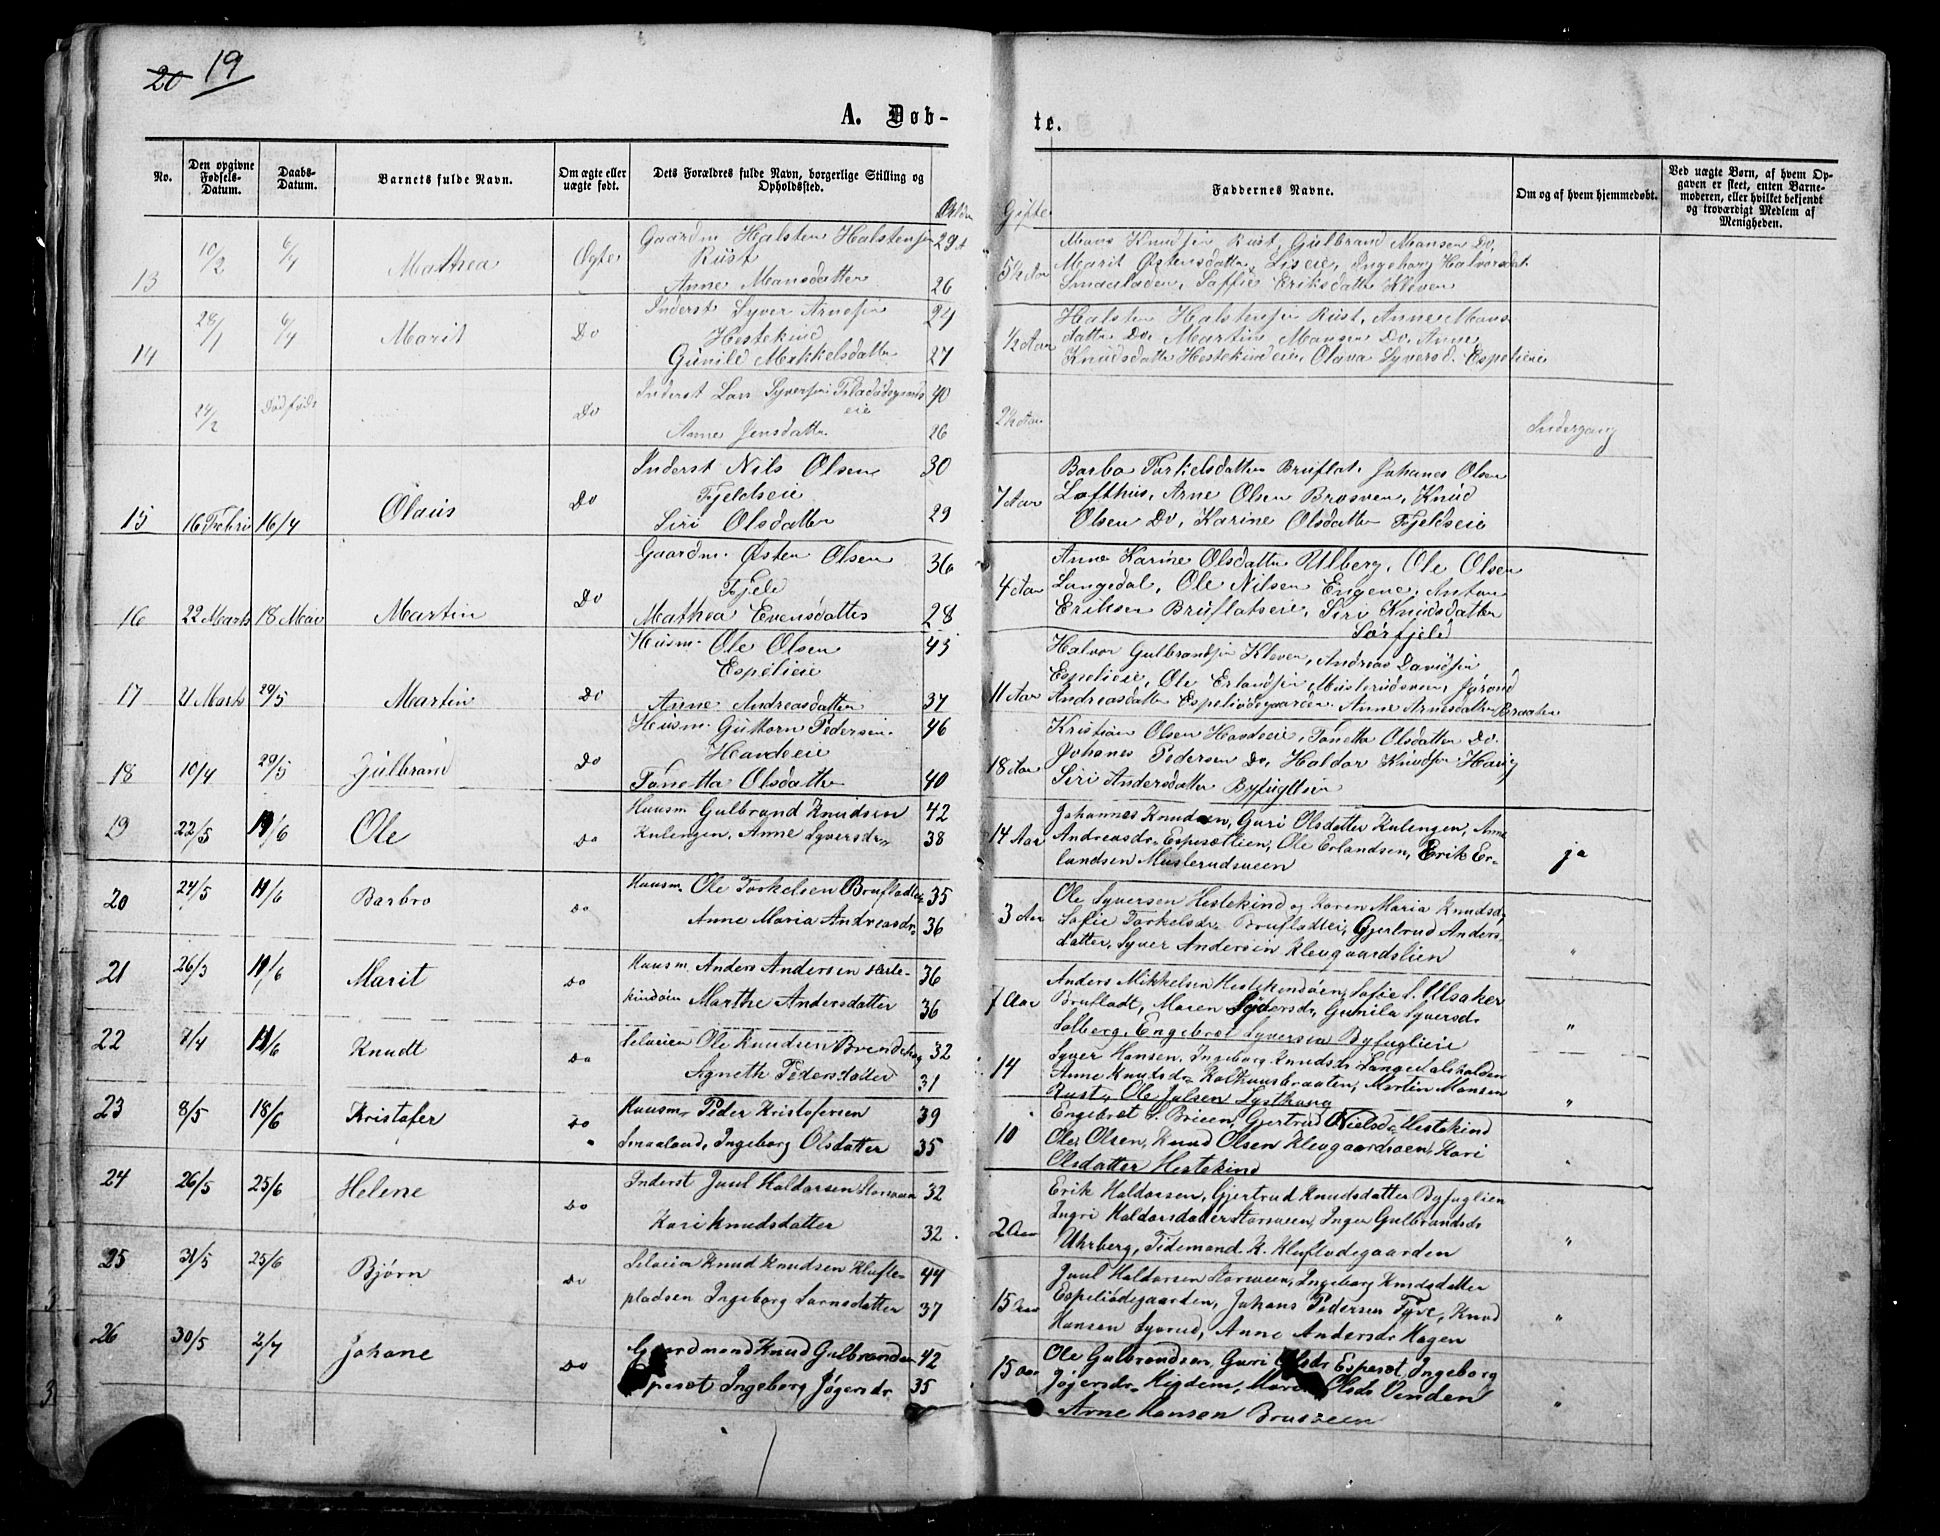 20 19
A. Døb-
te.
No.
Den opgivne Fødsels-Datum.
Daabs-Datum.
Barnets fulde Navn.
Om ægte eller uægte født.
Dets Forældres fulde Navn, borgerlige Stilling og Opholdssted.
Alder
Gifte
Faddernes Navne.
Om og af hvem hjemmedøbt.
Ved uægte Børn, af hvem Opgaven er skeet, enten Barnemoderen, eller hvilket bekjendt og troværdigt Medlem af Menigheden.
13 10/2 6/4 Mathea Ægte
Gaardm Halsten Halstensen 29
Rust
Anne Mansdatter 26
5½ Aar
Mans Knudsen Rust, Gulbrand Mansen Do,
Marit Østensdatter Liseie, Ingeborg Halvorsdat
Smaaladen, Saffie Eriksdatter Kleven
14 28/1 6/4 Marit Do
Inderst Syver Arnesen 24
Hestekind
Gunild Mikkelsdatter 27
½ Aar
Halsten Halstensen Rust, Anne Mans
datter Do, Martin Mansen Do, Anne
Knudsdatter Hestekindeie, Olava Syversd. Espelieie
24/2 Dødføds Do
Inderst Lars Syversen 40
eie
Anne Jensdatter 26
2½ Aar
15 16 Febri 16/4 Olaus Do
Inderst Nils Olsen 30
Fjeldseie
Siri Olsdatter 29
7 Aar
Barbo Torkelsdatter Bruflat, Johanes Olsen
Lofthus, Arne Olsen Brosven, Knud
Olsen Do, Karine Olsdatter Fjeldseie
16 22 Marts 18 Mai Martin Do
Gaardm. Østen Olsen 36
Fjeld
Mathea Evensdatter 28
4 Aar
Anne Karine Olsdatter Ulberg, Ole Olsen
Langedal, Ole Nilsen Engene, Anton
Eriksen Bruflatseie, Siri Knudsdatter
Sørfjeld
17 21 Marts 29/5 Martin Do
Husm. Ole Olsen 45
Espelieie
Anne Andreasdatter 37
11 Aar
Halvor Gulbrandsen Kleven, Andreas Davidsen
Espelieie, Ole Erlandsen Musterudsveen, Jørand
Andreasdatter Espeliødegaarden, Anne Arnesdatter Braaten
18 10/4 29/5 Gulbrand Do
Husm. Guttorn Pedersen 46
Havdeie
Tonetta Olsdatter 40
18 Aar
Kristian Olsen Havdeie, Tonetta Olsdatter Do.
Johanes Pedersen Do, Haldor Knudsen Haug
Siri Andersdatter Byfuglien
19 22/5 19/6 Ole Do
Huusm. Gulbrand Knudsen 42
Kulengen, Anne Syversdr 38
14 Aar
Johannes Knudsen, Guri Olsdatter Kulengen, Anne
Andreasdr Espesætlien, Ole Erlandsen, Erik Er-
landsen Musterudsveen
ja
20 24/5 19/6 Barbro Do
Huusm. Ole Torkelsen Brufladtei 35
Anne Maria Andreasdr 36
3 Aar
Ole Syversen Hestekind og Karen Maria Knudsdr
Sofie Torkelsdr Brufladtei, Gjertrud Anders-
datter, Syver Andersen Klevgaardslien
"
21 26/3 19/6 Marit Do
Huusm. Anders Andersen Heste- 36
kindøen Marthe Andersdatter 36
7 Aar
Anders Mikkelsen Hestekindøen, Sofie S. Ulsaker
Brufladt, Maren Syversdr, Gunild Syversdr
Solberg, Engebret Syversen Byfuglieie
"
22 7/4 19/6 Knudt Do
Seleier Ole Knudsen Brendehaug 32
Agneth Pedersdatter 31
14
Syver Hansen, Ingeborg Knudsdr Langedalshalden
Anne Knutsdr Kolhuusbraaten, Martin Mansen
Rust, Ole Julsen Lysthaug
"
23 8/5 18/6 Kristofer Do
Huusm. Peder Kristofersen 39
Smaaland, Ingeborg Olsdatter 35
10
Engebret S. Brieen, Gjertrud Nielsdr Hestekind
Ole Olsen, Knud Olsen Klevgaardsøen, Kari
Olsdatter Hestekind
"
24 26/5 25/6 Helene Do
Inderst Juul Haldorsen Storsveen 32
Kari Knudsdatter 32
2 Aar
Erik Haldorsen, Gjertrud Knudsdatter Byfuglien
Ingri Haldorsdatter Storsveen, Inger Gulbrandsdr
Uhrberg, Tidemand K. Kluftødegaarden
"
25 31/5 25/6 Bjørn Do
Seleier Knud Knudsen Klufte- 44
pladsen Ingeborg Larsdatter 37
15 Aar
Juul Haldorsen Storsveen, Ingeborg Knudsdatter
Espeliødegaarden, Johans Pedersen Tyve, Knud
Hansen Syverud, Anne Andersdr Hagen
"
26 30/5 2/7 Johane Do
Gaardmand Knud Gulbrandsen 42
Espeset Ingeborg Jøgersdr 35
15 Aar
Ole Gulbrandsen, Guri Olsdr Espeset, Ingeborg
Jøgersdr Higdem, Maren Olsdr Vinden
Arne Hansen Brusveen
"